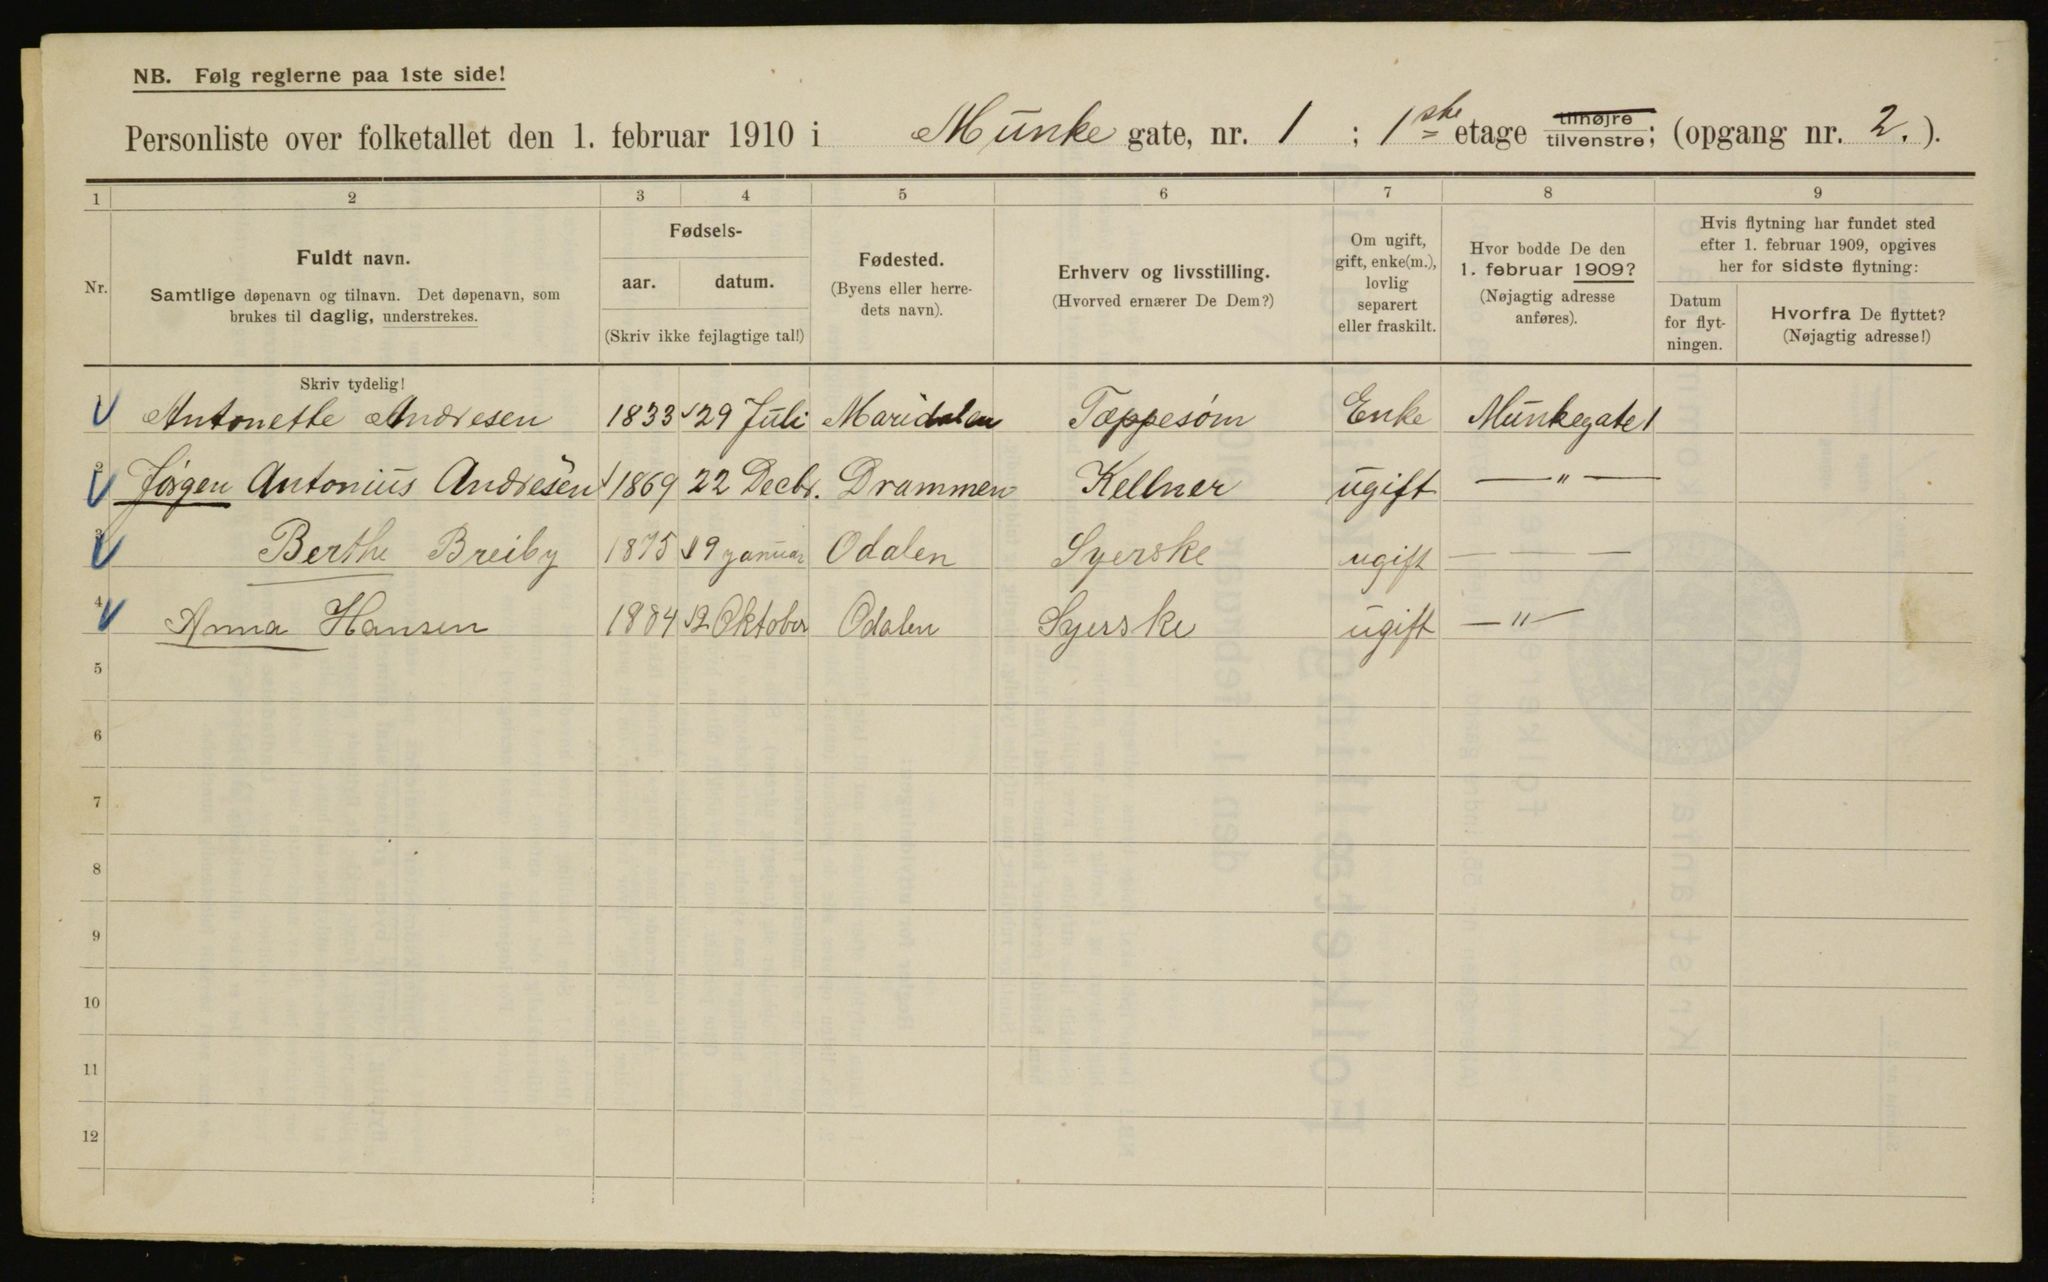 NB. Følg reglerne paa 1ste side!
Personliste over folketallet den 1. februar 1910 i Munke gate, nr. 1 ; 1ste etage tilhøjre tilvenstre; (opgang nr. 2. ).
1 2 3 4 5 6 7 8 9
Nr.
Fuldt navn.
Samtlige døpenavn og tilnavn. Det døpenavn, som
brukes til daglig, understrekes.
Fødsels-
aar. datum.
(Skriv ikke fejlagtige tal!)
Fødested.
(Byens eller herre-
dets navn).
Erhverv og livsstilling.
(Hvorved ernærer De Dem?)
Om ugift,
gift, enke(m.),
lovlig
separert
eller fraskilt.
Hvor bodde De den
1. februar 1909?
(Nøjagtig adresse
anføres).
Hvis flytning har fundet sted
efter 1. februar 1909, opgives
her for sidste flytning:
Datum
for flyt-
ningen.
Hvorfra De flyttet?
(Nøjagtig adresse!)
Skriv tydelig!
1 Antonette Andresen 1833 29 Juli Maridalen Tæppesøm Enke Munkegate 1
2 Jørgen Antonius Andresen 1869 22 Decbr. Drammen Kellner ugift — " —
3 Berthe Breiby 1875 19 januar Odalen Syerske ugift — — —
4 Anna Hansen 1884 12 Oktober Odalen Syerske ugift — " —
5
6
7
8
9
10
11
12